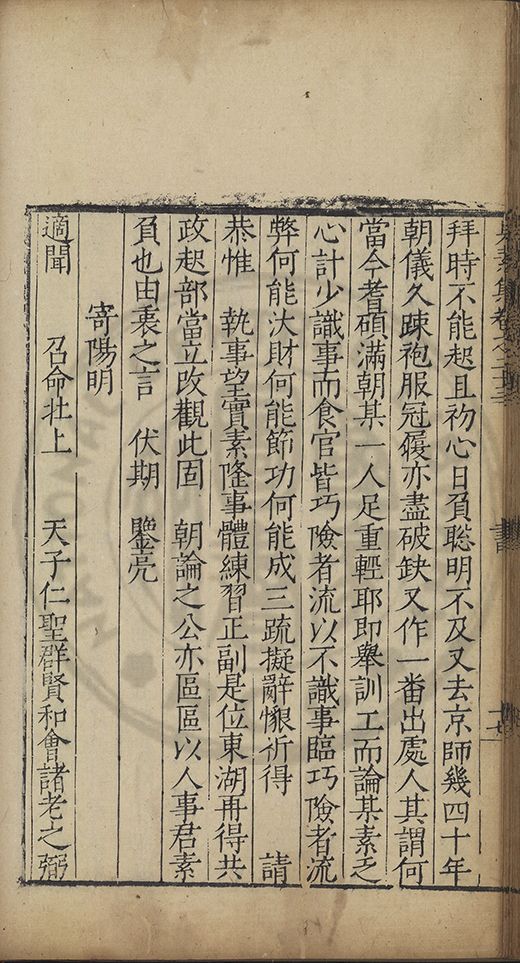 拜時不能起且初心日負聡明不及又去京師幾四十年
朝儀久踈袍服冠履亦盡破缺又作一番出處人其謂何
當今耆碩滿朝某一人足重輕耶即舉訓工而論某素乏
心計少識事而食官皆巧險者流以不識事臨巧險者流
弊何能汰財何能節功何能成三疏擬辭懇祈得　請
恭惟　執事望實素隆事體練習正副是位東湖再得共
政起部當立改觀此固　朝論之公亦區區以人事君素
負也由衷之言　伏期　鑒亮
寄陽明
適聞　召命壯上　天子仁聖群賢和會諸老之弼